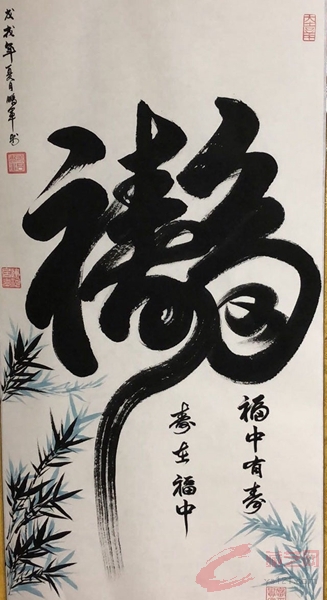 福寿
福中有寿
寿在福中
戊戌年夏月鹏军书